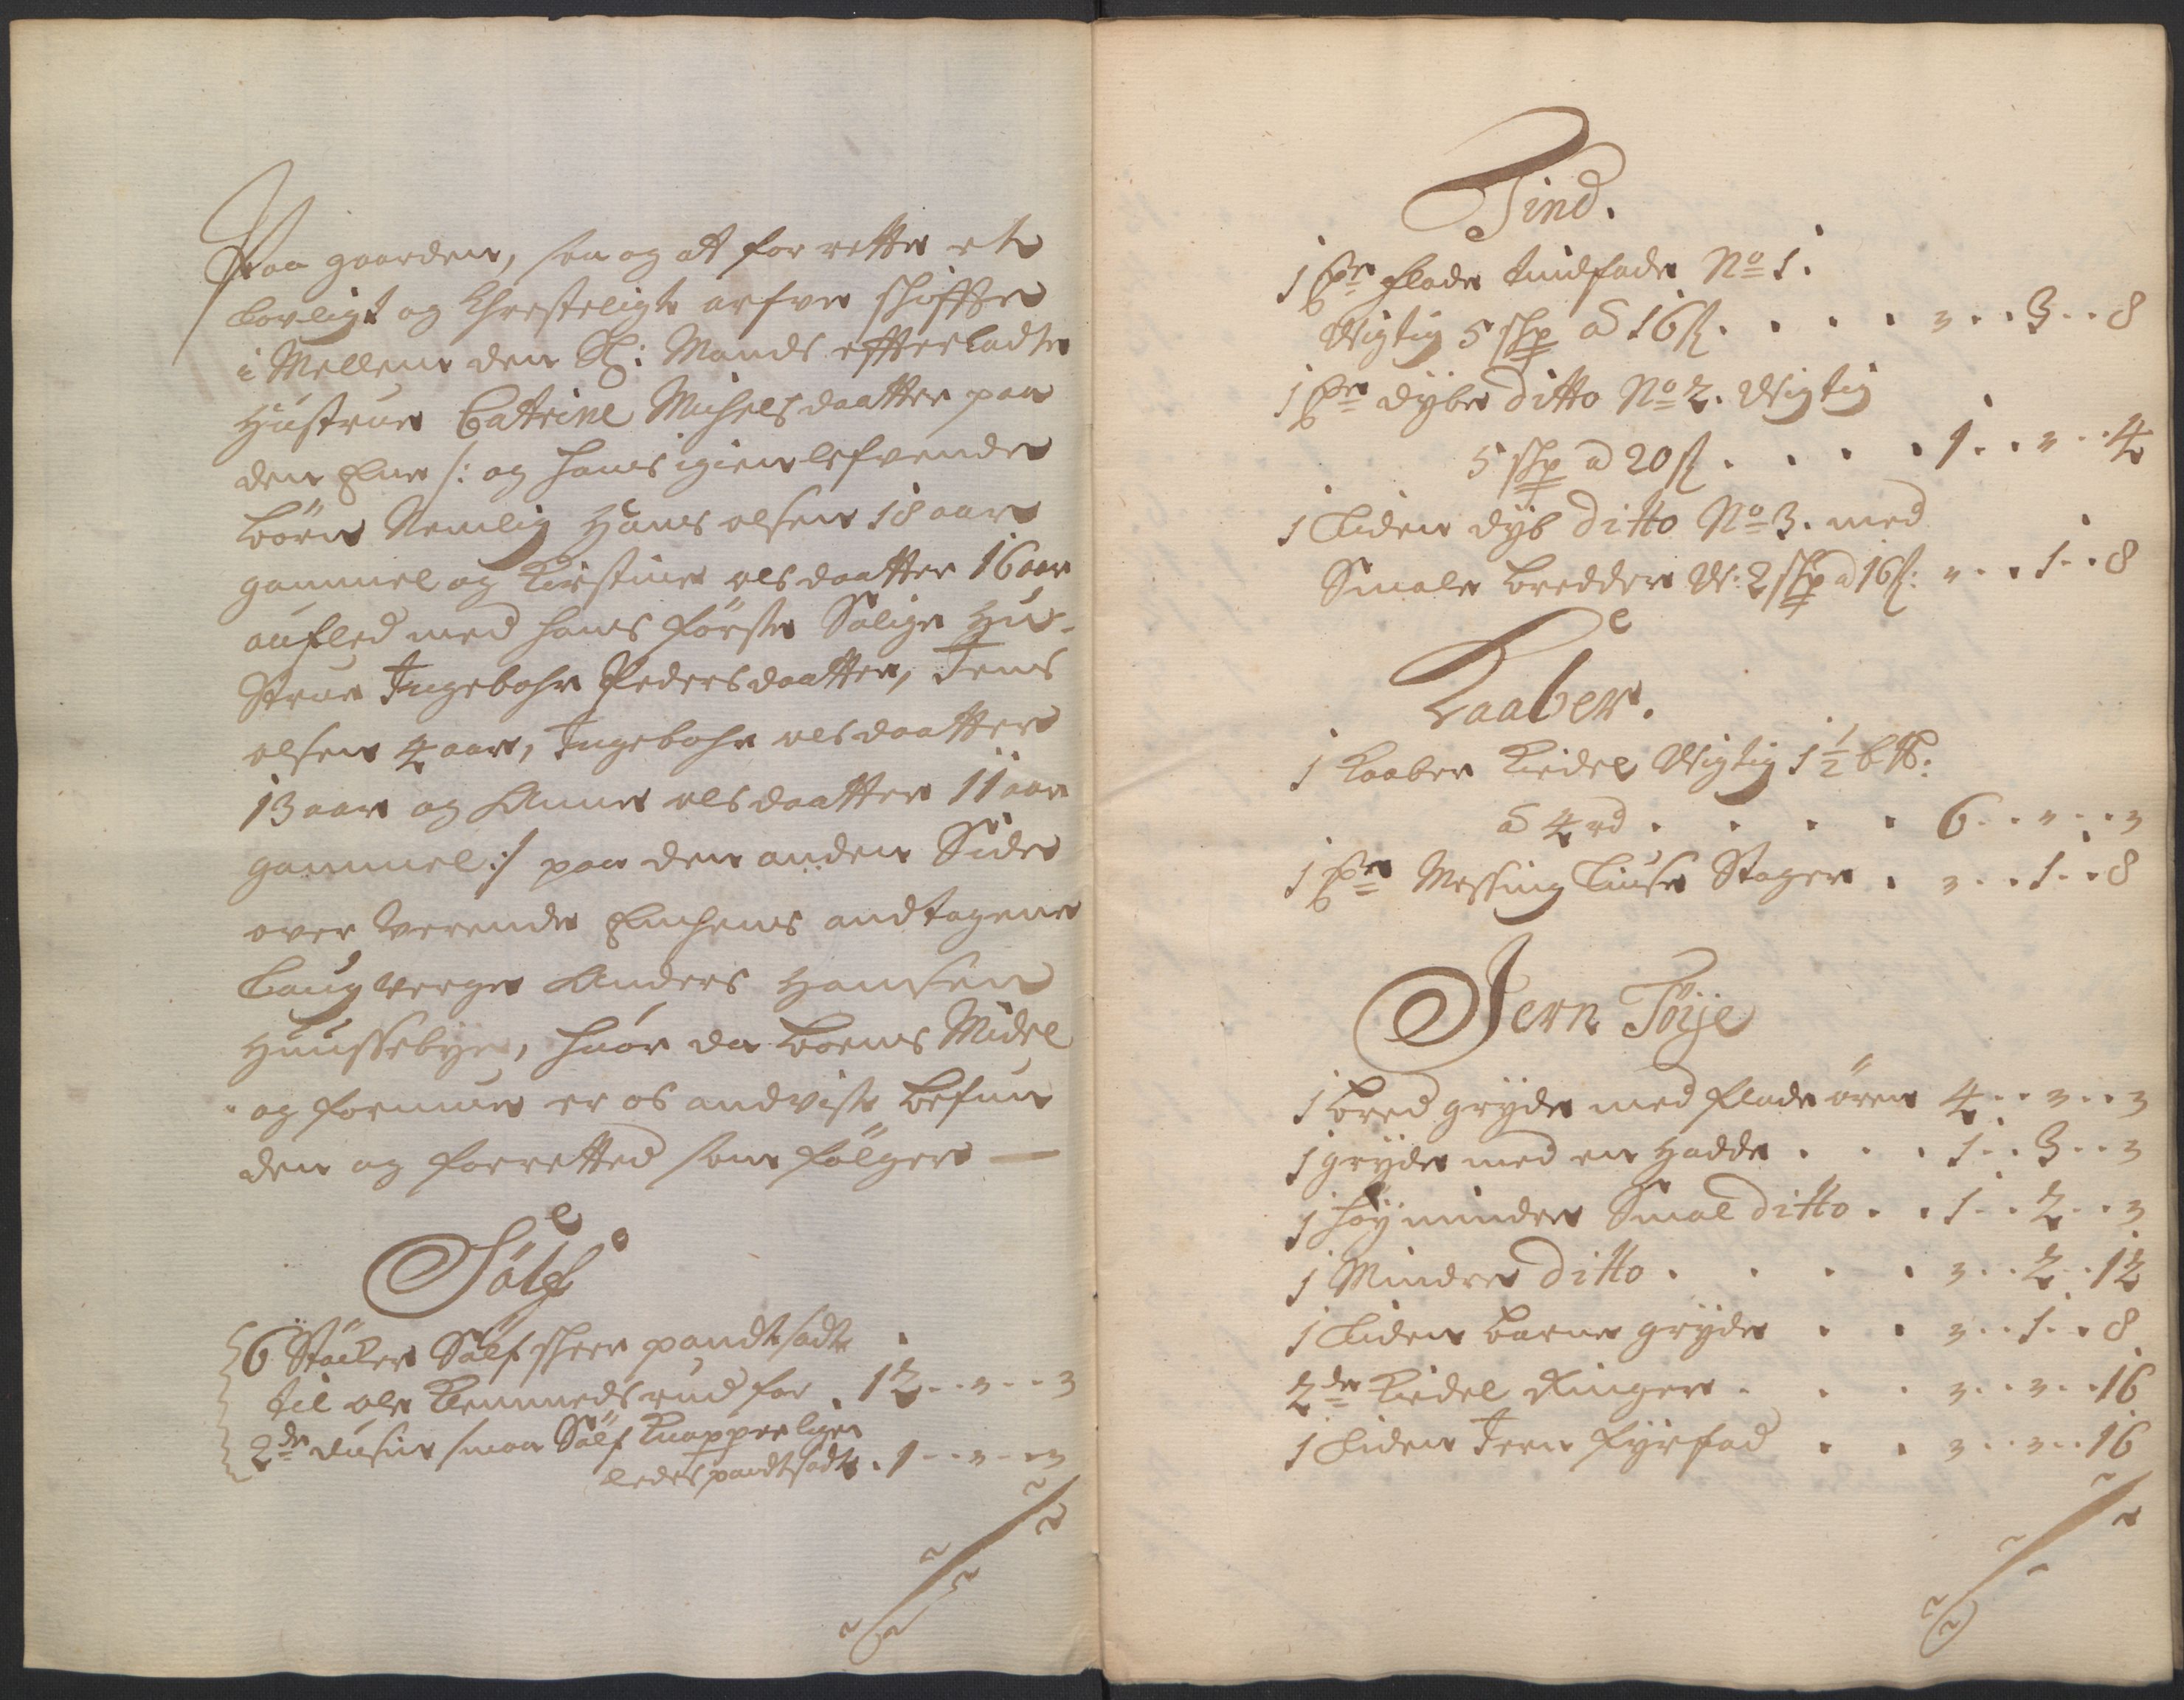 Paa gaarden, saa og at for rette et
Lovligt og Christeligt arfve skiffte
i Mellem den Sl: Mands effterladte
Hustrue Catrine Michelsdaatter paa
den Ene /: og hans igienlefvende
Börn Nemlig Hans olsen 18 aar
gammel og Kirstine olsdaatter 16 aar
aufled med hans förste Salige Hu-
strue Ingebohr Pedersdaatter, Jens
olsen 4 aar, Ingebohr olsdaatter
13 aar og Anne olsdaatter 11 aar
gammel :/ paa den anden Side
over Verende Enchens andtagene
Laug verge Anders Hansen
Huussebye, huor da Boens Midel
og formue er os andvist befun
den og forretted som fölger —
Sölf
6 Stöcker Sölf skeer pandtsadt
til ole Klemmedsrud for . 12 .. " .. "
2de dusin smaa Sölf Knapper lige
ledes pandtsadt . 1 .. " .. "
Tind.
1 Pr flade tindfade No 1.
Wigtig 5 skp a 16 s . . . . " .. 3 .. 8
1 Pr dybe ditto No 2. Wigtig
5 skp a 20 s . . . . 1 .. " .. 4
1 Liden dyb ditto No 3. med
Smale bredder W: 2 skp a 16 s: " .. 1 .. 8
Kaaber.
1 Kaaber Kiedel Wigtig 1 1/2 b℔:
a 4 rd . . . . 6 .. " .. "
1 Pr Messing Liuse Stager . " .. 1 .. 8
Jern Töije
1 bred gryde med flade ören 4 .. " .. "
1 gryde med en Hadde . . . 1 .. 3 .. "
1 höy mindre Smal ditto . . 1 .. 2 .. "
1 Mindre ditto . . . . " .. 2 .. 12
1 Liden barne gryde . . " .. 1 .. 8
2de Kiedel Ringer . . . " .. " .. 16
1 Liden Jern fyrfad . . " .. " .. 16